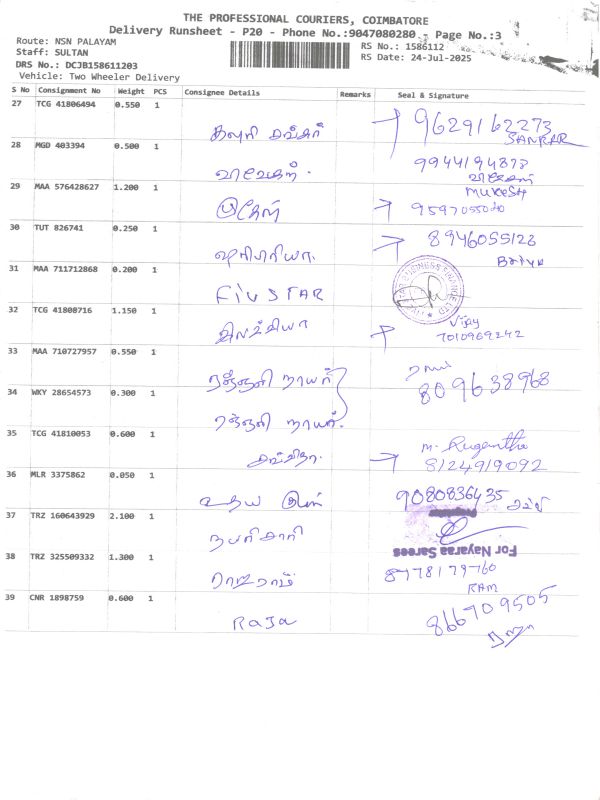 THE PROFESSIONAL COURIERS, COIMBATORE
Delivery Runsheet - P20 - Phone No.:9047080280 - Page No.:3
Route: NSN PALAYAM
Staff: SULTAN
RS No.: 1586112
RS Date: 24-Jul-2025
DRS No.: DCJB158611203
Vehicle: Two Wheeler Delivery
S No Consignment No Weight PCS Consignee Details Remarks Seal & Signature
27 TCG 41806494 0.550 1
9629162273
SANKAR
28 MGD 403394 0.500 1
9944194873
29 MAA 576428627 1.200 1
MUKESH
முகேஷ்
9597055040
30 TUT 826741 0.250 1
8946055128
ஹரிபிரியா.
Briya
31 MAA 711712868 0.200 1
FIVSTAR
32 TCG 41808716 1.150 1
Vijay
இலக்கியா
7010969242
33 MAA 710727957 0.550 1
நாயர்
809638968
34 WKY 28654573 0.300 1
நாயர்.
35 TCG 41810053 0.600 1
8124919092
36 MLR 3375862 0.050 1
9080836435
உதய
37 TRZ 160643929 2.100 1
For Nayaraa Sarees
38 TRZ 325509332 1.300 1
8778179760
ராஜராம்
RAM
39 CNR 1898759 0.600 1
866709505
RaJa